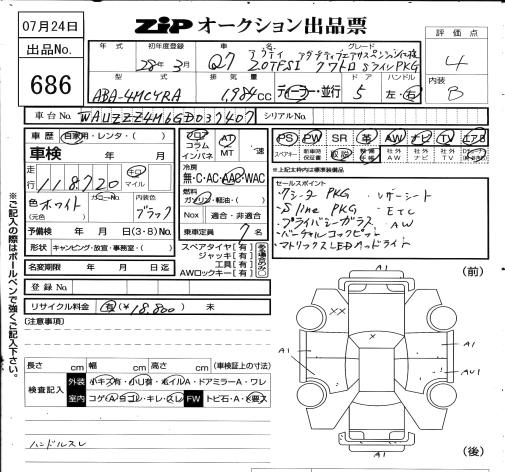 07月24日
出品No.
686
ZIP オークション出品票
評価点
4
内装
B
年式
初年度登録
28年3月
車名
Q7
グレード
アウディ アダプティブエアサスペンション仕様
2.0TFSI クワトロ SラインPKG
型式
ABA-4MCYRA
排気量
1,984cc
ディーラー・並行
ドア
5
ハンドル
左・右
車台No.
WAUZZZ4M6GD037407
シリアルNo.
車歴
自家用・レンタ・( )
車検
年 月
走行
118,720
キロ
マイル
色
ホワイト
(元色)
カラーNo.
内装色
ブラック
予備検
年 月 日(3・8)No.
形状
キャンピング・放宣・事務室・( )
名変期限
年 月 日迄
登録No.
リサイクル料金
有(¥18,800)
未
フロア
コラム
インパネ
AT
MT
速
冷房
無・C・AC・AAC・WAC
燃料
ガソリン・軽油・( )
Nox
適合・非適合
乗車定員
7名
スペアタイヤ[有]
ジャッキ[有]
工具[有]
AWロックキー[有]
ある場合のみ○
PS PW SR 革 AW ナビ TV エアB
スペアキー
新車時保証書
取説
整備手帳
社外AW
社外ナビ
社外TV
※上記太枠内は標準装備品
セールスポイント
・7シーターPKG
・レザーシート
・S line PKG
・ETC
・プライバシーガラス
・AW
・バーチャルコックピット
・マトリックスLEDヘッドライト
※ご記入の際はボールペンで強くご記入下さい。
[注意事項]
長さ cm 幅 cm 高さ cm (車検証上の寸法)
検査記入
外装
小キズ有・小凹有・ホイルA・ドアミラーA・ワレ
室内
コゲ・A・ヨゴレ・キレ・スレ
FW
トビ石・A・X要ス
ハンドルスレ
(前)
A1
XX
X
A1
A1
A1
AU1
A1
(後)